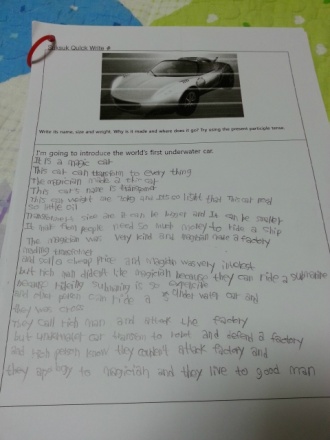 Ssisuk Quick Write #
Write its name, size and weight. Why is it made and where does it go? Try using the present participle tense.
I'm going to introduce the world's first underwater car.
It is a magic car
This car can transform to every thing
The magician made a the car
This car's name is transport
This car weight are 70kg and its so light that The car need
so little oil
size are a can be bigger and It can be smaller
It made from people need so much money to ride a ship
The magician was very kind and magician make a factory
and sold a cheap price and magician was very
but rich man didn't like magician because they can ride a submarine
because submarine is so expensive
and other person can ride a under water car and
they was cross
They call rich man and attack the factory
but underwater car transform to robot and defend a factory
and rich person know they couldn't attack factory and
they apology to magician and they live to good man